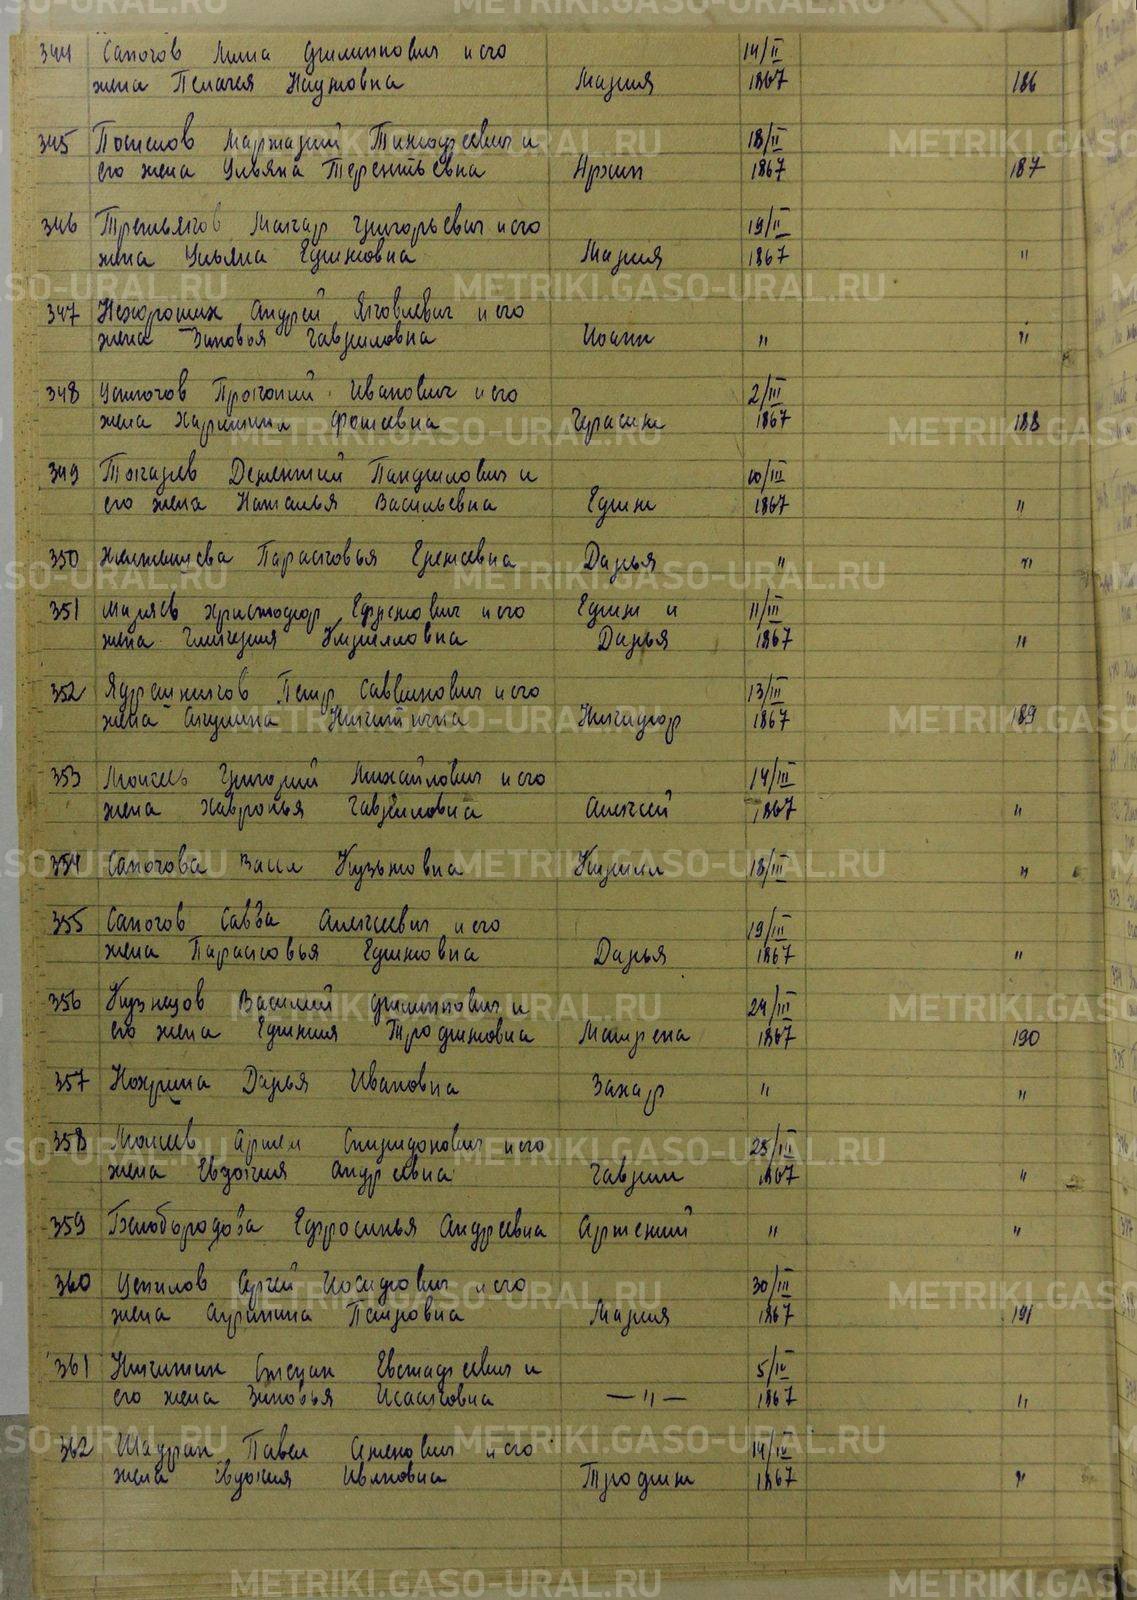 344 Сапогов Илиа Филиппович и его
жена Пелагея Наумовна Мария 14/II 1867 186
345 Поспелов Тимофеевич и
его жена Ульяна Терентьевна Архип 18/II 1867 187
346 Третьяков Макар Григорьевич и его
жена Ульяна Ефимовна Мария 19/II 1867 "
347 Нехороших Андрей Яковлевич и его
жена Зиновья Гавриловна Иоанн " "
348 Прокопий Иванович и его
жена Харитина Фотеевна Герасим 2/III 1867 188
349 Токарев Дементий Панфилович и
его жена Наталья Васильевна Ефим 10/III 1867 "
350 Парасковья Еремевна Дарья " "
351 Христофор Ефремович и его Ефим и
жена Гликерия Кирилловна Дарья 11/III 1867 "
352 Ядрышников Петр Саввинович и его
жена Акулина Никитична Никифор 13/III 1867 189
353 Григорий Михайлович и его
жена Хавронья Гавриловна Алексей 14/III 1867 "
354 Сапогова Васса Кузьмовна Кирилл 18/III "
355 Сапогов Савва Алексеевич и его
жена Парасковья Ефимовна Дарья 19/III 1867 "
356 Кузнецов Василий Филиппович и
его жена Ефимия Трофимовна Матрена 24/III 1867 190
357 Нохрина Дарья Ивановна Захар " "
358 Моисеев Артем Спиридонович и его
жена Евдокия Андреевна Гавриил 25/III 1867 "
359 Белобородова Ефросинья Андреевна Артемий " "
360 Цепилов Сергей Иосифович и его
жена Агрипина Петровна Мария 30/III 1867 191
361 Никитин Степан Евстафеевич и
его жена Зиновья Исааковна — " — 5/IV 1867 "
362 Шадрин Павел Семенович и его
жена Евдокия Ивановна Трофим 14/IV 1867 "
METRIKI.GASO-URAL.RU